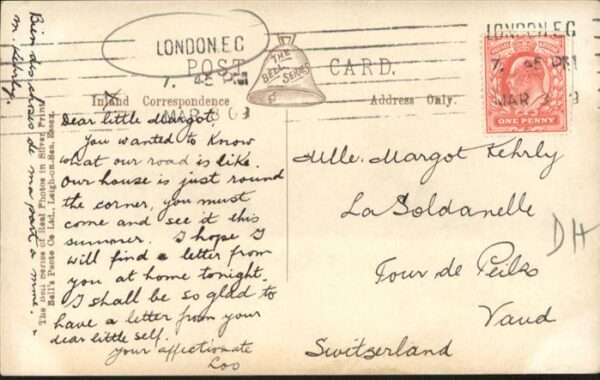 LONDON. E.C
7. 45 PM
MAR 3 03
LONDON. E.C
7. 45 PM
MAR 3 3
POST CARD.
THE BELL SERIES
Inland Correspondence
Address Only.
ONE PENNY
Dear little Margot,
You wanted to know
what our road is like.
Our house is just round
the corner, you must
come and see it this
summer. I hope I
will find a letter from
you at home tonight.
I shall be so glad to
have a letter from your
dear little self.
Your affectionate
Los
Mlle. Margot Kehrly
La Soldanelle
Tour de Peilz
Vaud
Switzerland
DH
Bien des choses de ma part à mme.
M. Kehrly.
The Bell Series of Real Photos in Silver Print
Bell's Photo Co Ltd., Leigh-on-Sea, Essex.